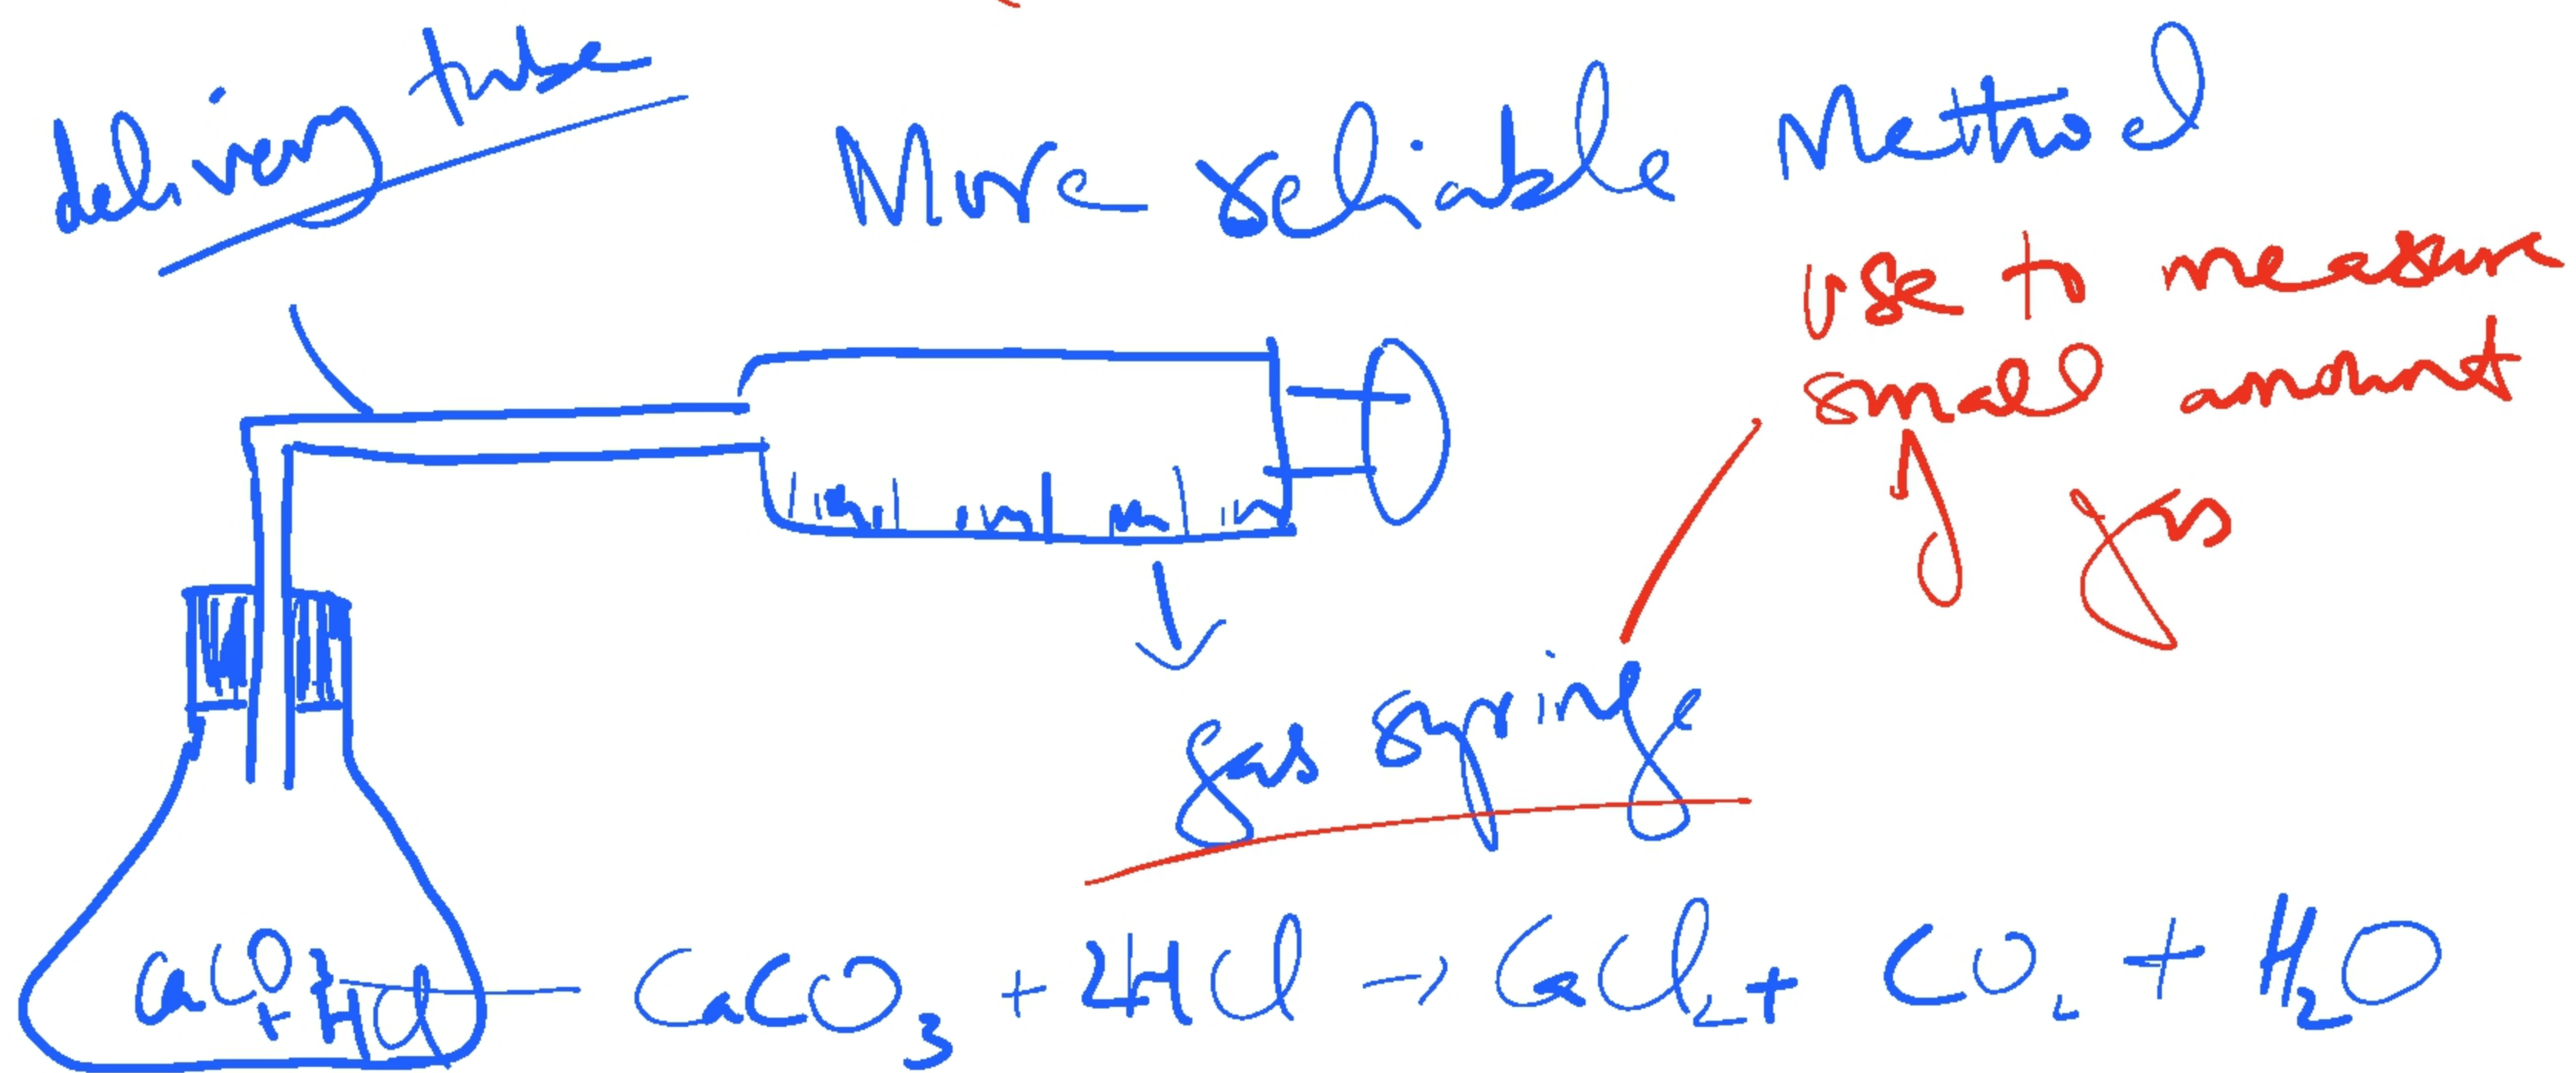 delivery tube
More reliable Method
use to measure
small amount
of gas
gas syringe
CaCO3
+ HCl
CaCO3 + 2HCl → CaCl2 + CO2 + H2O